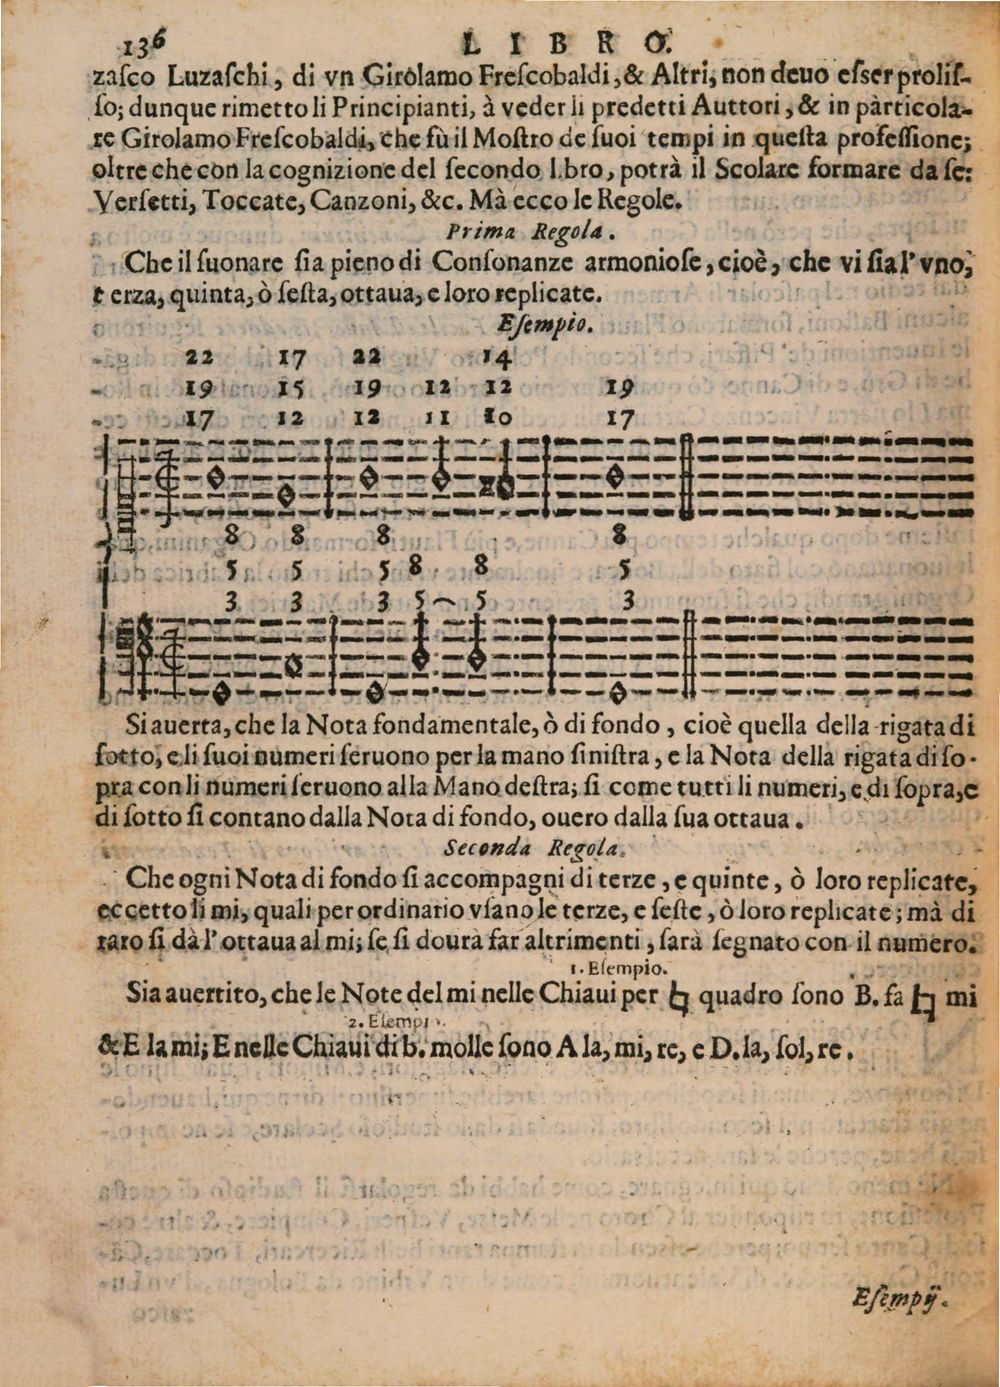 136 LIBRO.
zaſco Luzaſchi, di vn Girolamo Freſcobaldi, & Altri, non deuo eſser proliſ-
ſo; dunque rimetto li Principianti, à veder li predetti Auttori, & in particola-
re Girolamo Freſcobaldi, che fù il Moſtro de ſuoi tempi in queſta profeſſione;
oltre che con la cognizione del ſecondo Lbro, potrà il Scolare formare da ſe:
Verſetti, Toccate, Canzoni, &c. Mà ecco le Regole.
Prima Regola.
Che il ſuonare ſia pieno di Conſonanze armonioſe, cioè, che vi ſia l'vno,
terza, quinta, ò ſeſta, ottaua, e loro replicate.
Eſempio.
22 17 22 14
19 15 19 12 12 19
17 12 12 11 10 17
8 8 8 8
5 5 5 8 8 5
3 3 3 5 5 3
Si auerta, che la Nota fondamentale, ò di fondo, cioè quella della rigata di
ſotto, e li ſuoi numeri ſeruono per la mano ſiniſtra, e la Nota della rigata di ſo-
pra con li numeri ſeruono alla Mano deſtra; ſi come tutti li numeri, e di ſopra, e
di ſotto ſi contano dalla Nota di fondo, ouero dalla ſua ottaua.
Seconda Regola.
Che ogni Nota di fondo ſi accompagni di terze, e quinte, ò loro replicate,
eccetto li mi, quali per ordinario vſano le terze, e ſeſte, ò loro replicate; mà di
raro ſi dà l'ottaua al mi; ſe ſi dourà far altrimenti, ſarà ſegnato con il numero.
1. Eſempio.
Sia auertito, che le Note del mi nelle Chiaui per ♮ quadro ſono B. fa ♮ mi
2. Eſempio.
& E la mi; E nelle Chiaui di b. molle ſono A la, mi, re, e D. la, ſol, re.
Eſempÿ.